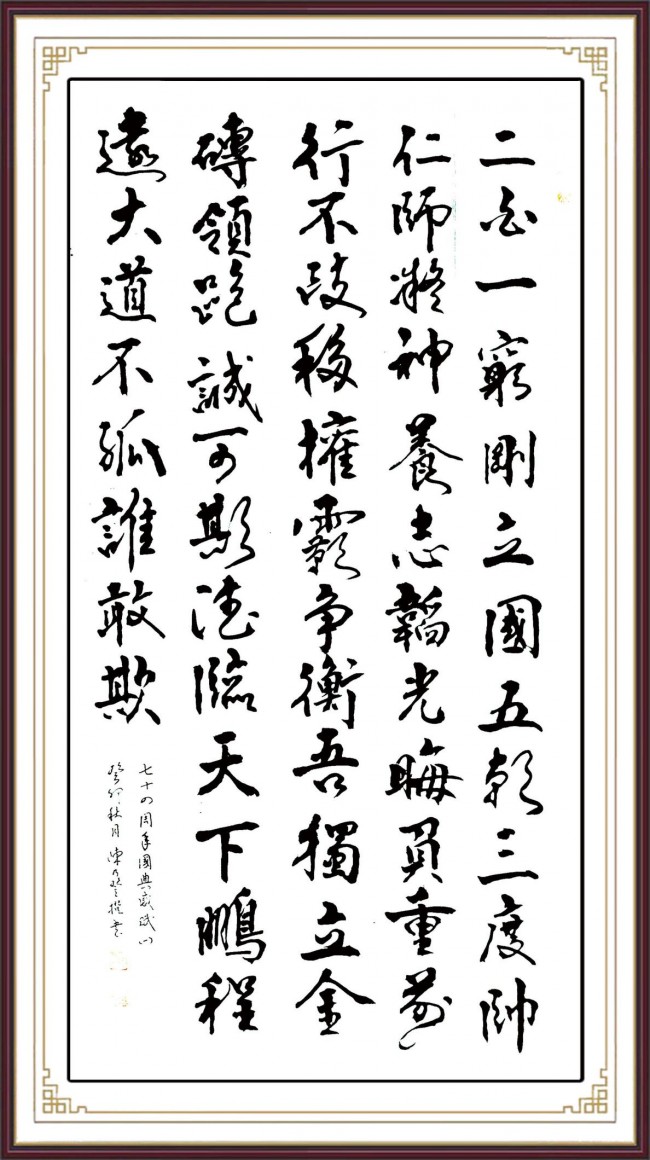 二白一窮剛立國五朝三度帥
仁師凝神養志韜光晦負重前
行不歧移擁霸争衡吾獨立金
磚領跑誠可期德臨天下鵬程
遠大道不孤誰敢欺
七十四周年國典感賦
癸卯秋月陳撰書